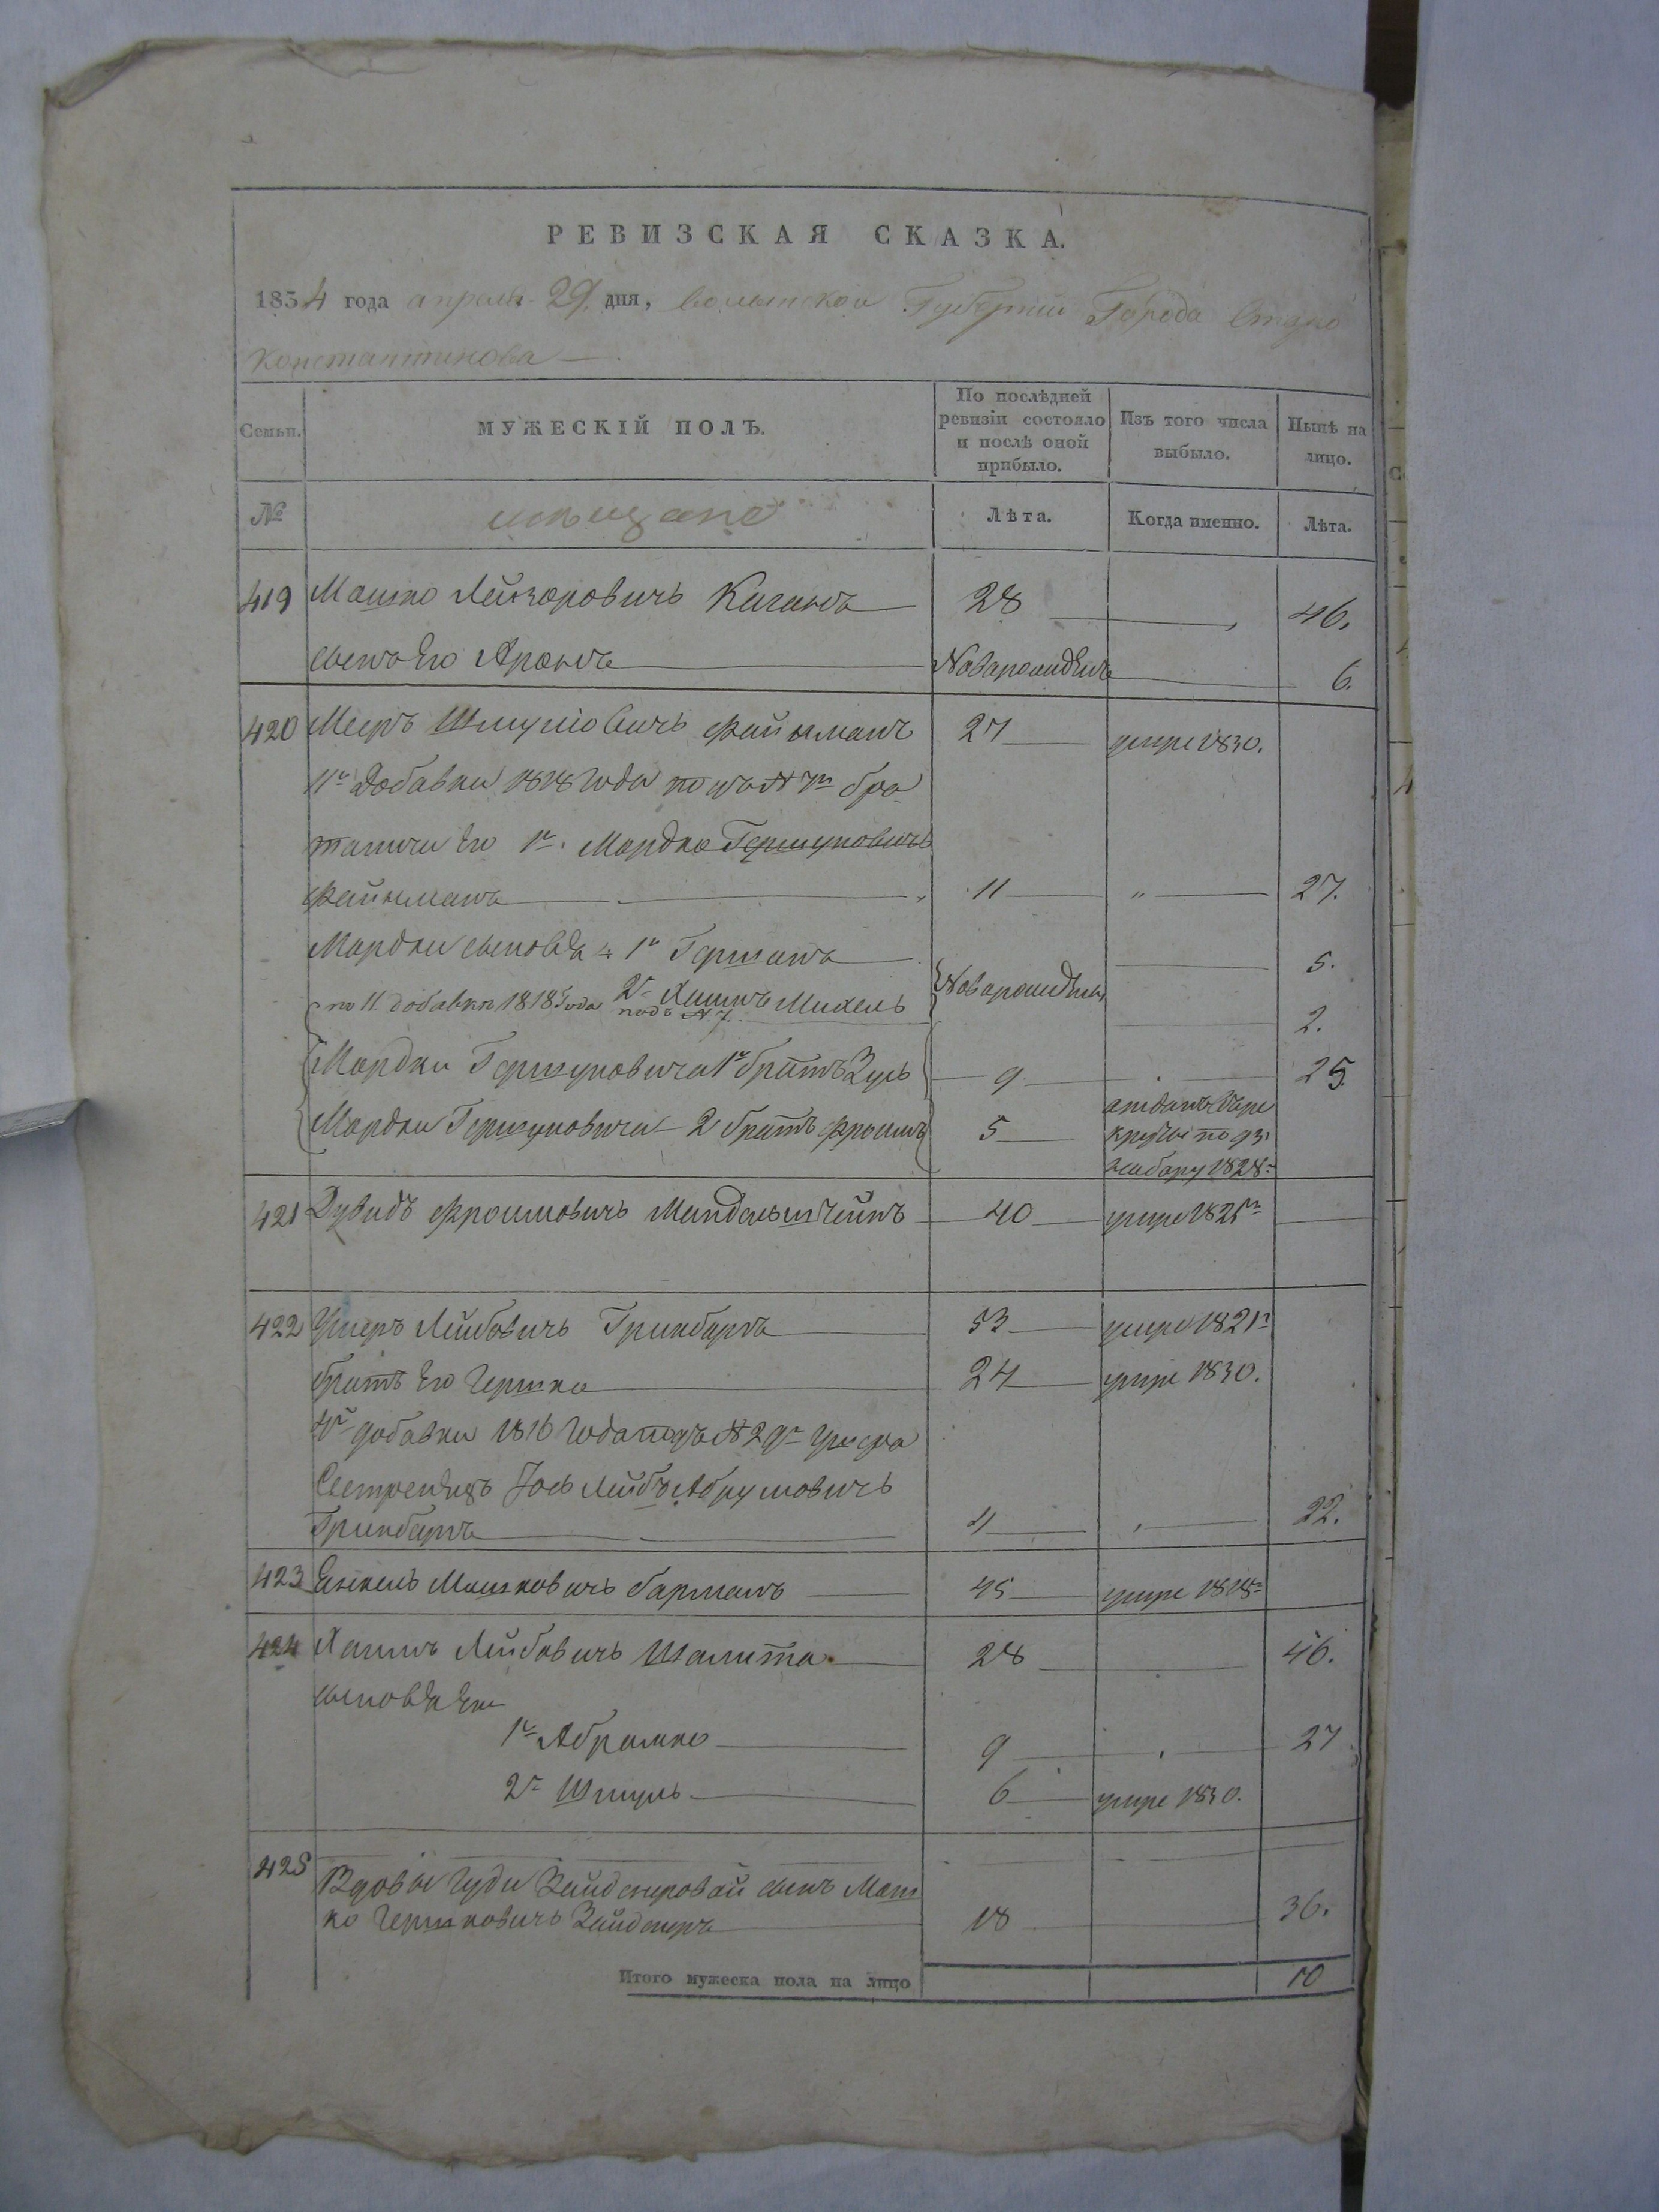 РЕВИЗСКАЯ СКАЗКА.
1834 года апреля 29 дня, Волынской Губернии Города Старо
константинова —
Семьи. МУЖЕСКІЙ ПОЛЪ. По послѣдней ревизіи состояло и послѣ оной прибыло. Изъ того числа выбыло. Нынѣ на лицо.
№ мещане Лѣта. Когда именно. Лѣта.
419 Мошко Лейзоровичъ Каганъ 28 46.
сынъ Его Аронъ Новорожденъ 6.
420 Мееръ Шмулiовичъ Файнманъ 27 умре 1830.
11й Добавки 1818 года подъ № 7м бра
таничи Его 1й Мордко Гершуновичъ
Файнманъ 11 " 27.
Мордки сыновья 1й Гершонъ 5.
по 11 добавкѣ 1818 Года подъ № 7. 2й Хаимъ Михель Новорожденъ 2.
Мордки Гершуновича 1й братъ Зусь 9 25
Мордки Гершуновича 2 братъ Фроимъ 5 отданъ въ ре
круты по 93
набору 1828
421 Дувидъ Фроимовичъ Мандельштейнъ 40 умре 1825
422 Ушеръ Лейбовичъ Гринбаргъ 53 умре 1821
братъ Его Гершко 24 умре 1830.
добавки 1816 Года подъ № 29 Ушера
Сестренецъ Йось Лейбъ Абрумовичъ
Гринбаргъ 4 22.
423 Янкель Мошковичъ Гарманъ 45 умре 1818
424 Хаимъ Лейбовичъ Шамита 28 46.
сыновья Его
1й Абрамко 9 27
2й Шмуль 6 умре 1830.
425 Вдовы Гуди Зайднеровой сынъ Мош
ко Гершковичъ Зайднеръ 18 36.
Итого мужеска пола на лицо 10